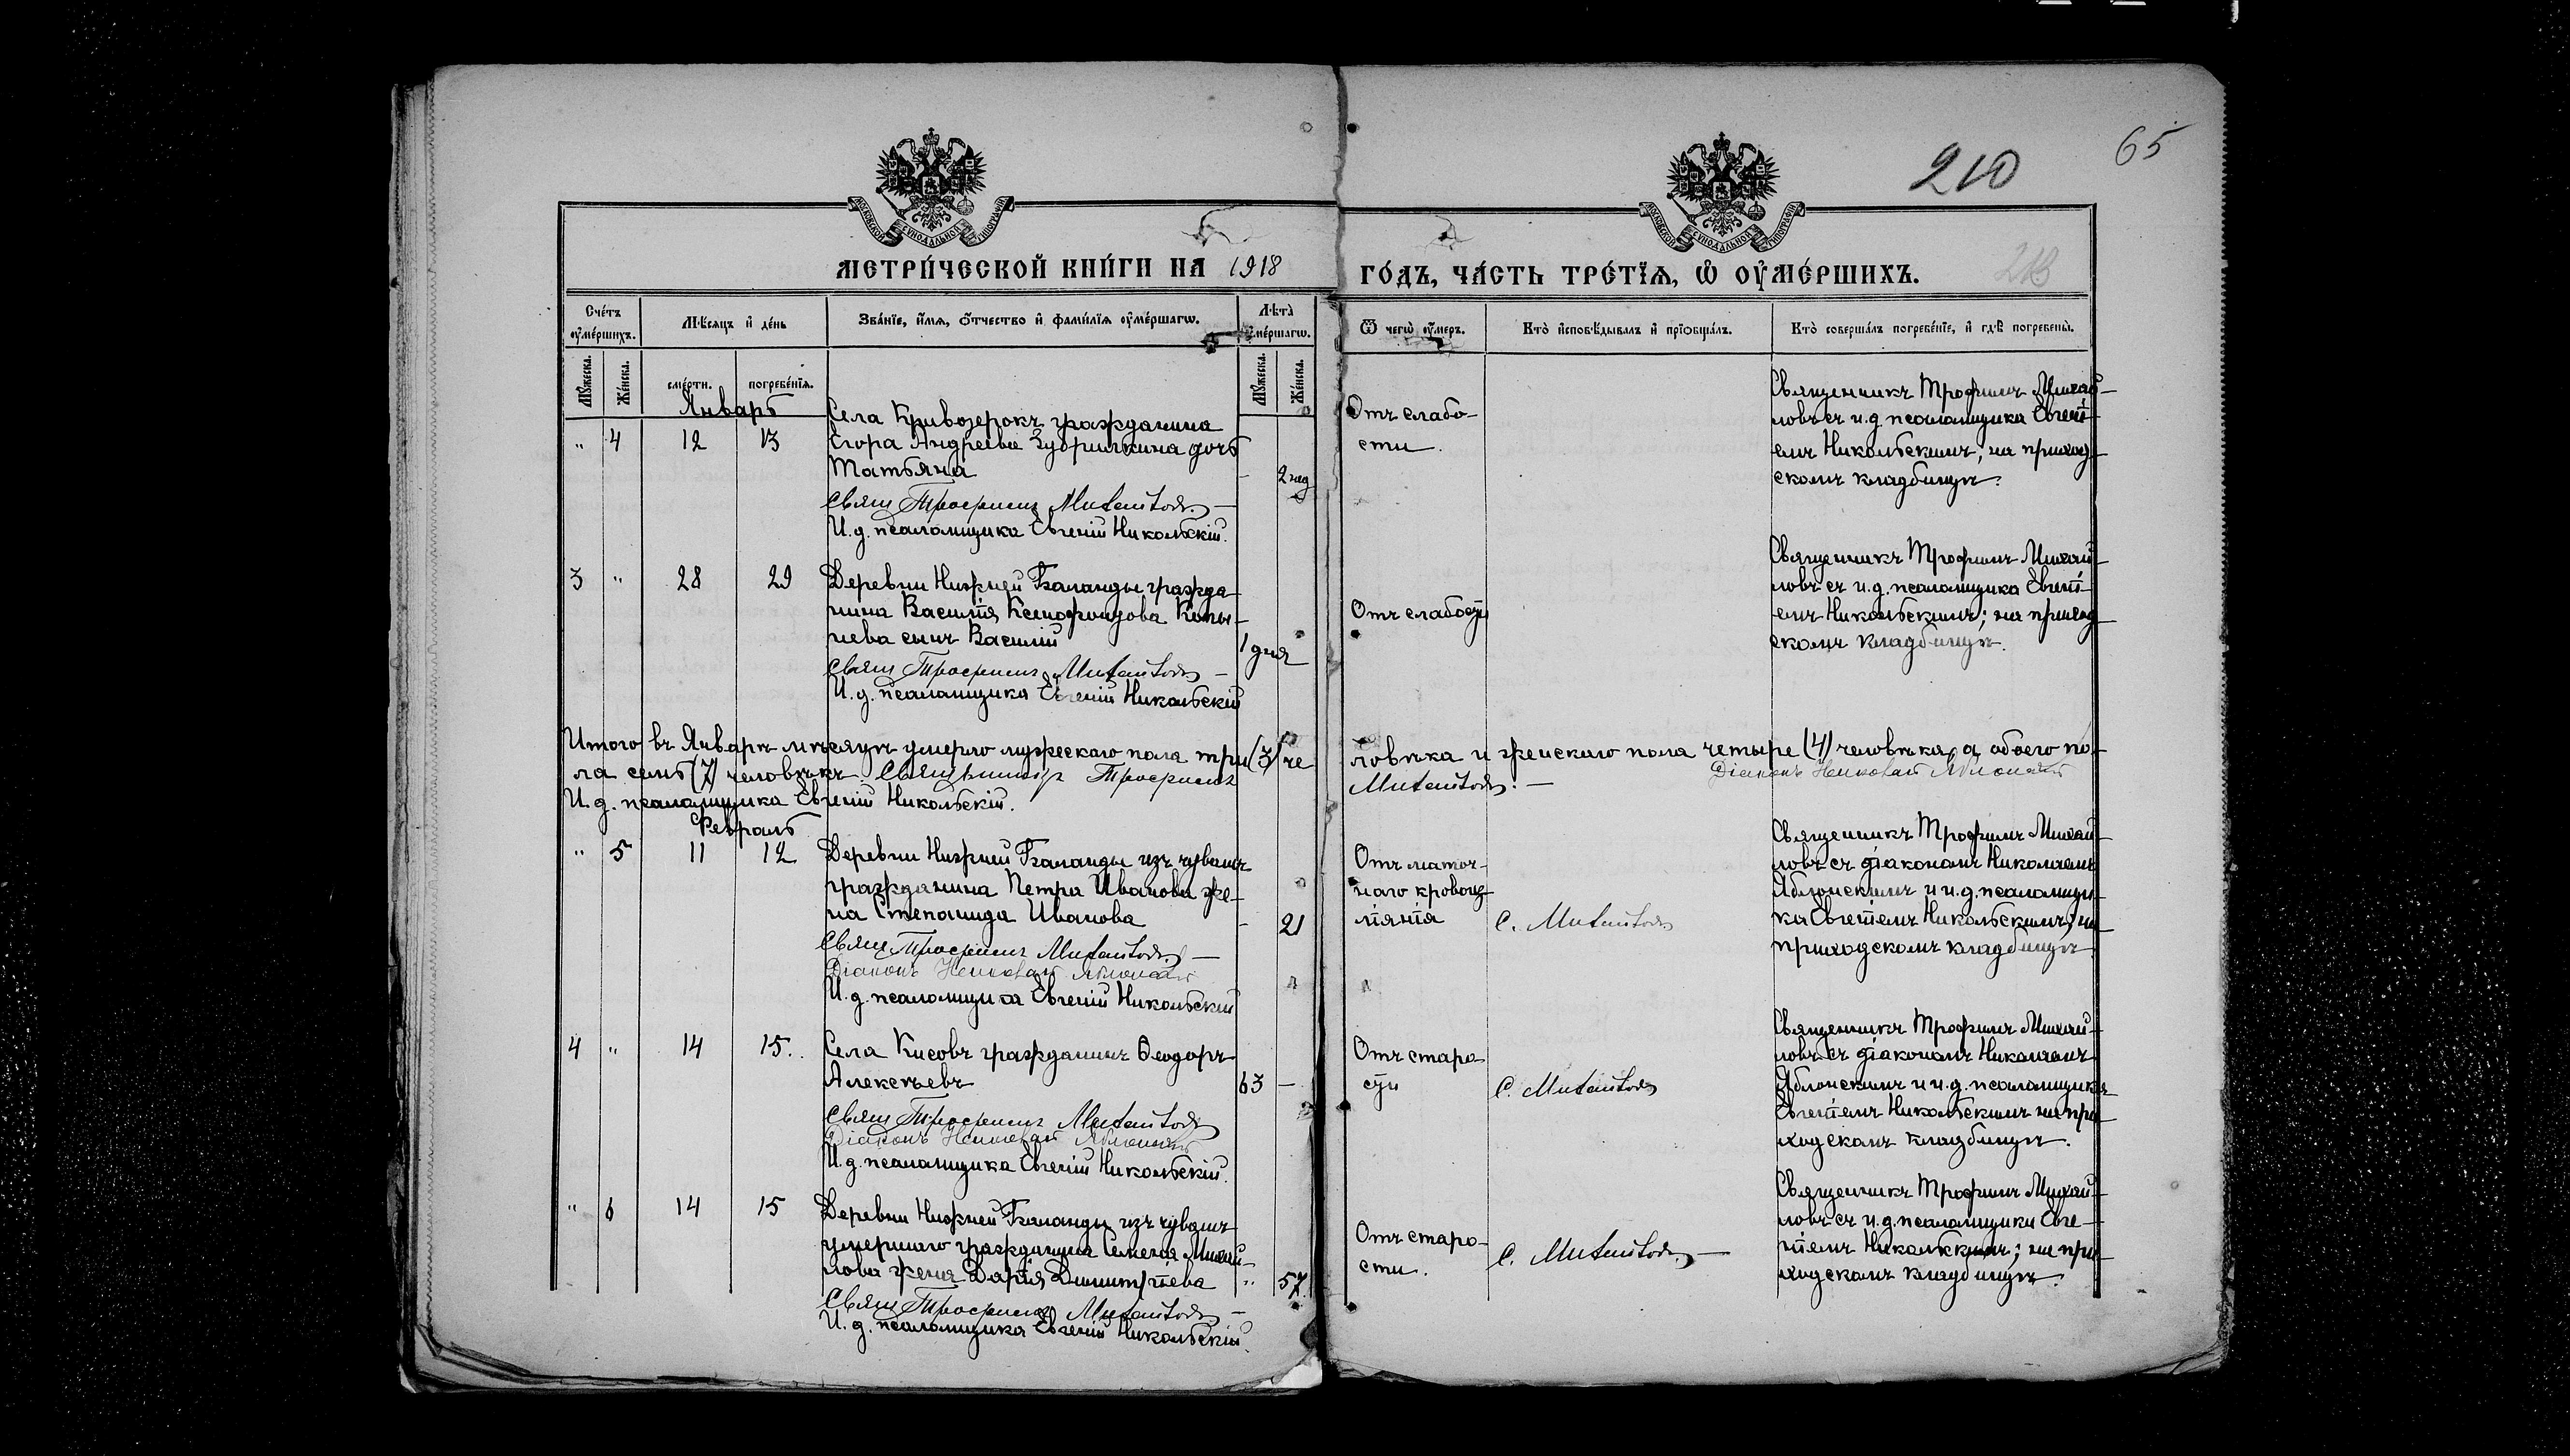 210
65
213
МОСКОВСКОЙ СѴНОДАЛЬНОЙ ТИПОГРАФІИ
МОСКОВСКОЙ СѴНОДАЛЬНОЙ ТИПОГРАФІИ
МЕТРИ́ЧЕСКОЙ КНИ́ГИ НА 1918
ГО́ДЪ, ЧА́СТЬ ТРЕ́ТЇѦ, Ѽ ОУ҆МЕ́РШИХЪ.
Сче́тъ оу҆ме́ршихъ.
Мѣ́сяцъ и҆ де́нь
Зва́нїе, и҆́мѧ, ѻ҆́тчество и҆ фами́лїѧ оу҆ме́ршагѡ.
Лѣ́та̀ оу҆ме́ршагѡ.
Ѿ чегѡ̀ оу҆́меръ.
Кто̀ и҆сповѣ́дывалъ и҆ прїобща́лъ.
Кто̀ соверша́лъ погребе́нїе, и҆ гдѣ̀ погребены̀.
Мꙋ́жеска.
Же́нска.
сме́рти.
погребе́нїѧ.
Мꙋ́жеска.
Же́нска.
Январь
„ 4 12 13
Села Кривозерокъ гражданина
Егора Андреева Зудрилкина дочь
Татьяна
- 2 нед
Свящ Трофимъ Михайловъ. —
И. д. псаломщика Евгеній Никольскій.
Отъ слабо-
сти.
Священникъ Трофимъ Михай-
ловъ съ и. д. псаломщика Евгені-
емъ Никольскимъ; на приход-
скомъ кладбищѣ.
3 „ 28 29
Деревни Нижней Баланды гражда-
нина Василія Ксенофонтова Копы-
нева сынъ Василій
1 дня
Свящ Трофимъ Михайловъ —
И. д. псаломщика Евгеній Никольскій
Отъ слабости
Священникъ Трофимъ Михай-
ловъ съ и. д. псаломщика Евгені-
емъ Никольскимъ; на приход-
скомъ кладбищѣ.
Итого въ Январѣ мѣсяцѣ умерло мужескаго пола три (3) че
ловѣка и женскаго пола четыре (4) человѣка, а обоего по-
ла семь (7) человѣкъ. Священникъ Трофимъ
Михайловъ. —
Діаконъ Николай Яблонскій
И. д. псаломщика Евгеній Никольскій.
Февраль
„ 5 11 12
Деревни Нижней Баланды изъ чувашъ
гражданина Петра Иванова же-
на Степанида Иванова
- 21
Свящ Трофимъ Михайловъ. —
Діаконъ Николай Яблонскій
И. д. псаломщика Евгеній Никольскій
Отъ маточ-
наго кровоиз-
ліянія
С. Михайловъ
Священникъ Трофимъ Михай-
ловъ съ діакономъ Николаемъ
Яблонскимъ и и. д. псаломщи-
ка Евгеніемъ Никольскимъ; на
приходскомъ кладбищѣ.
4 „ 14 15.
Села Кисовъ гражданинъ Ѳеодоръ
Алексѣевъ
63 —
Свящ Трофимъ Михайловъ
Діаконъ Николай Яблонскій
И. д. псаломщика Евгеній Никольскій.
Отъ старо
сти
С. Михайловъ
Священникъ Трофимъ Михай-
ловъ съ діакономъ Николаемъ
Яблонскимъ и и. д. псаломщика
Евгеніемъ Никольскимъ на при
ходскомъ кладбищѣ.
„ 6 14 15
Деревни Нижней Баланды изъ чувашъ
умершаго гражданина Семена Михай-
лова жена Дарія Димитріева
„ 57.
Свящ Трофимъ Михайловъ —
И. д. псаломщика Евгеній Никольскій.
Отъ старо-
сти.
С. Михайловъ. —
Священникъ Трофимъ Михай-
ловъ съ и. д. псаломщика Евге-
ніемъ Никольскимъ; на при-
ходскомъ кладбищѣ.